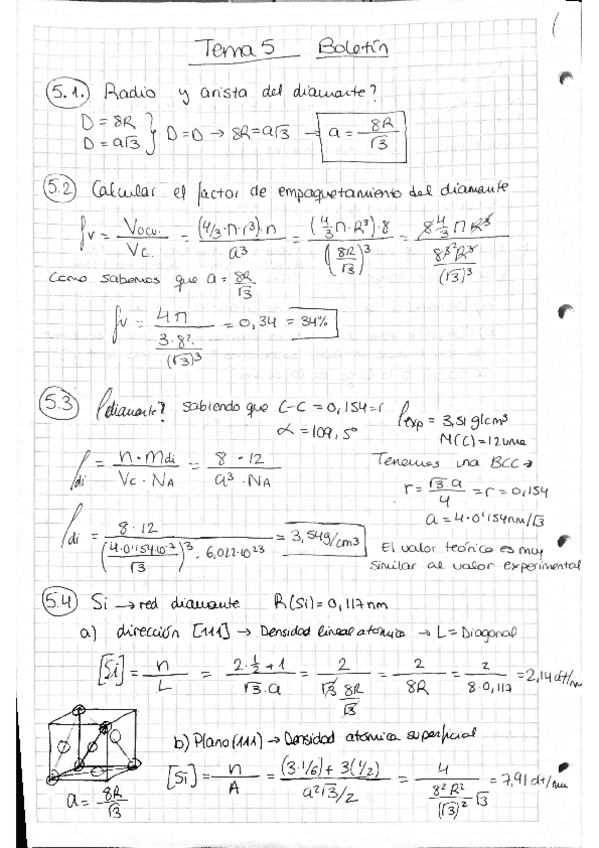 Tema 5 Boletín
5.1. Radio y arista del diamante?
D = 8R
D = a√3 } D=D → 8R=a√3 → a = 8R/√3
5.2 Calcular el factor de empaquetamiento del diamante
fv = Vocu./Vc. = (4/3·π·r³)·n/a³ = (4/3 π·R³)·8/(8R/√3)³ = 8 4/3 π R³/(8·8²R³/(√3)³)
Como sabemos que a = 8R/√3
fv = 4π/(3·8²/(√3)³) = 0,34 = 34%
5.3 ρdiamante? sabiendo que C-C = 0,154=r ρexp = 3,51 g/cm³
α = 109,5° M(C)=12uma
ρdi = n·mdi/(Vc·NA) = 8·12/(a³·NA) Tenemos una BCC→
r = √3 a/4 = r = 0,154
a = 4·0'154nm/√3
ρdi = 8·12/((4·0'154·10⁻⁷/√3)³·6,022·10²³) = 3,54g/cm³
El valor teórico es muy
similar al valor experimental
5.4 Si → red diamante R(Si)=0,117nm
a) dirección [111] → Densidad lineal atómica → L= Diagonal
[Si] = n/L = (2·1/2+1)/(√3·a) = 2/(√3 8R/√3) = 2/8R = 2/(8·0,117) = 2,14 dt/nm
b) Plano (111) → Densidad atómica superficial
[Si] = n/A = ((3·1/6)+3(1/2))/(a²√3/2) = 4/(8²R²/(√3)² √3) = 7,91 dt/nm
a = 8R/√3